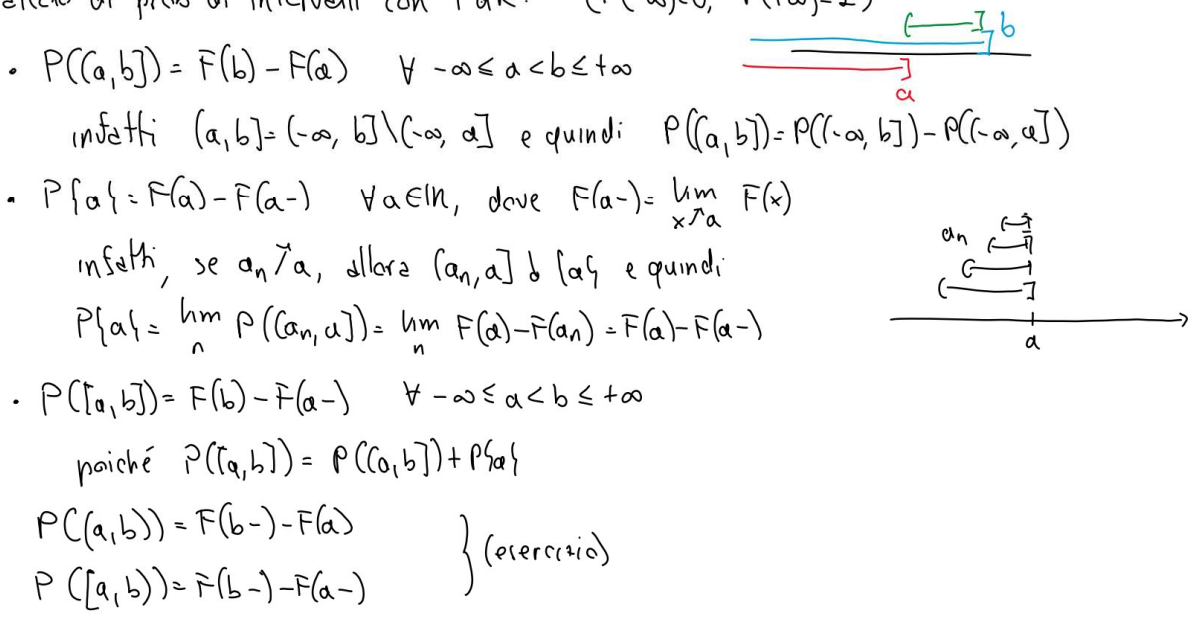 di intervalli con
• P((a,b]) = F(b) - F(a) ∀ -∞ ≤ a < b ≤ +∞
b
a
infatti (a,b] = (-∞, b] \ (-∞, a] e quindi P((a,b]) = P((-∞,b]) - P((-∞,a])
• P{a} = F(a) - F(a-) ∀ a ∈ ℝ, dove F(a-) = lim x↗a F(x)
infatti, se an ↗ a, allora (an, a] ↓ {a} e quindi
an
P{a} = lim n P((an, a]) = lim n F(a) - F(an) = F(a) - F(a-)
a
• P([a,b]) = F(b) - F(a-) ∀ -∞ ≤ a < b ≤ +∞
poiché P([a,b]) = P((a,b]) + P{a}
P((a,b)) = F(b-) - F(a)
} (esercizio)
P([a,b)) = F(b-) - F(a-)